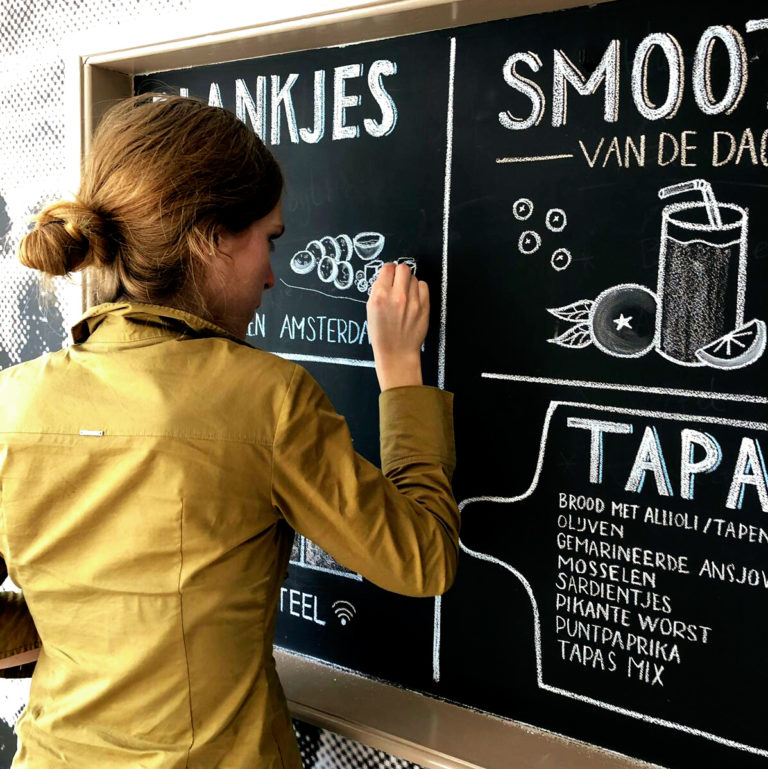 LANKJES
EN AMSTERDA
TEEL
SMOOT
VAN DE DAG
TAPA
BROOD MET ALIOLI / TAPEN
OLIJVEN
GEMARINEERDE ANSJOV
MOSSELEN
SARDIENTJES
PIKANTE WORST
PUNTPAPRIKA
TAPAS MIX